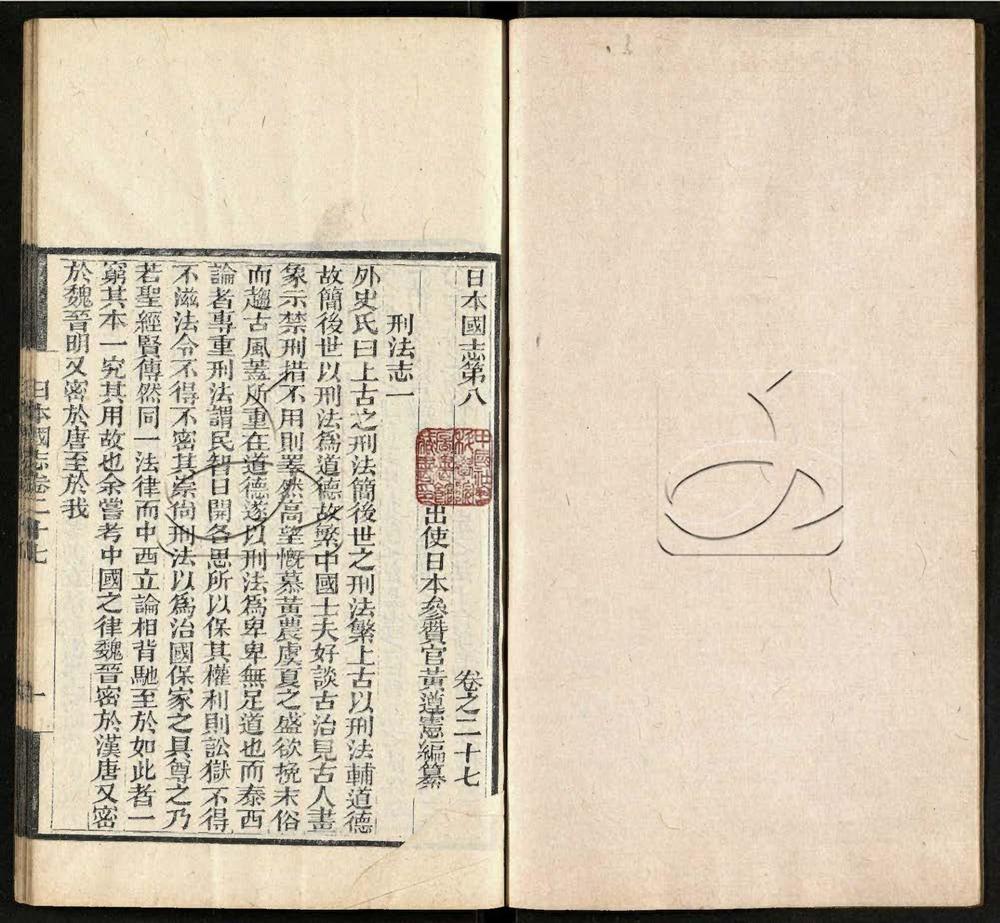 日本國志第八 卷之二十七
出使日本參贊官黃遵憲編纂
刑法志一
外史氏曰上古之刑法簡後世之刑法繁上古以刑法輔道德
故簡後世以刑法爲道德故繁中國士夫好談古治見古人畫
象示禁刑措不用則睪然高望慨慕黃農虞夏之盛欲挽末俗
而趨古風蓋所重在道德遂以刑法爲卑卑無足道也而泰西
論者專重刑法謂民智日開各思所以保其權利則訟獄不得
不滋法令不得不密其崇尚刑法以爲治國保家之具尊之乃
若聖經賢傳然同一法律而中西立論相背馳至於如此者一
窮其本一究其用故也余嘗考中國之律魏晉密於漢唐又密
於魏晉明又密於唐至於我
日本國志卷二十七
一